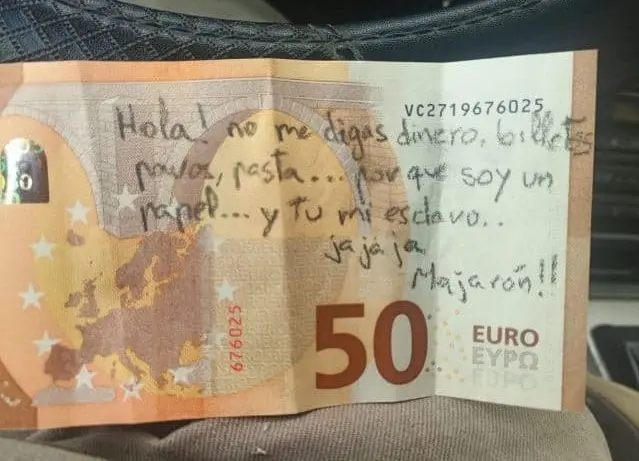 VC2719676025
Hola! no me digas dinero, billetes
pavos, pasta... porque soy un
papel... y tu mi esclavo..
jajaja
Majarón!!
676025
50
EURO
ΕΥΡΩ
ЕВРО